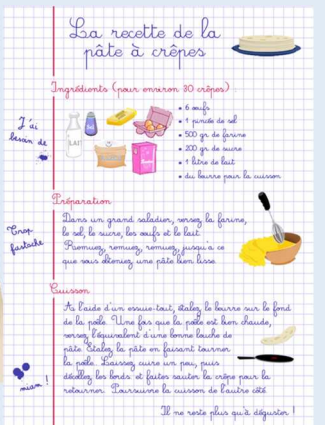 La recette de la
pâte à crêpes
Ingrédients (pour environ 30 crêpes) :
J'ai
besoin de
LAIT
• 6 œufs
• 1 pincée de sel
• 500 gr de farine
• 200 gr de sucre
• 1 litre de lait
• du beurre pour la cuisson
Préparation
Trop
fastoche
Dans un grand saladier, versez la farine,
le sel, le sucre, les œufs et le lait.
Remuez, remuez, remuez, jusqu'à ce
que vous obteniez une pâte bien lisse.
Cuisson
A l'aide d'un essuie-tout, étalez le beurre sur le fond
de la poêle. Une fois que la poêle est bien chaude,
versez l'équivalent d'une bonne louche de
pâte. Étalez la pâte en faisant tourner
la poêle. Laissez cuire un peu, puis
décollez les bords et faites sauter la crêpe pour la
retourner. Poursuivre la cuisson de l'autre côté.
miam !
Il ne reste plus qu'à déguster !